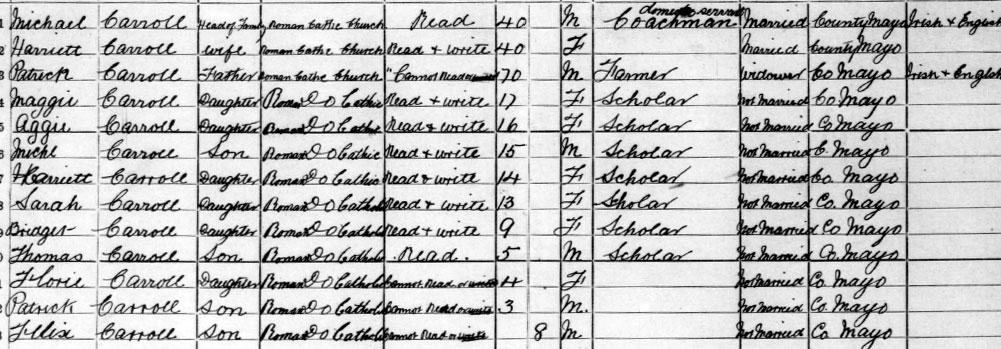 1 Michael Carroll Head of Family Roman Cathc Church Read 40 M Coachman domestic servant Married County Mayo Irish & English
2 Harriett Carroll Wife Roman Cathc Church Read & write 40 F Married County Mayo
3 Patrick Carroll Father Roman Cathc Church "Cannot Read or write 70 M Farmer Widower Co Mayo Irish & English
4 Maggie Carroll Daughter Roman Do Cathic Read & write 17 F Scholar Not Married Co Mayo
5 Aggie Carroll Daughter Roman Do Cathc Read & write 16 F Scholar Not Married Co. Mayo
6 Michl Carroll Son Roman Do Cathic Read & write 15 M Scholar Not Married C. Mayo
7 Harriett Carroll Daughter Roman Do Cathic Read & write 14 F Scholar Not Married Co. Mayo
8 Sarah Carroll Daughter Roman Do Catholic Read & write 13 F Scholar Not Married Co. Mayo
9 Bridget Carroll Daughter Roman Do Catholic Read & write 9 F Scholar Not Married Co Mayo
Thomas Carroll Son Roman Do Catholic Read. 5 M Scholar Not Married Co. Mayo
1 Florie Carroll Daughter Roman Do Catholic Cannot Read or write 4 F Not Married Co. Mayo
2 Patrick Carroll Son Roman Do Catholic Cannot Read or write 3 M. Not Married Co. Mayo
3 Felix Carroll Son Roman Do Catholic Cannot Read or write 8 M Not Married Co Mayo